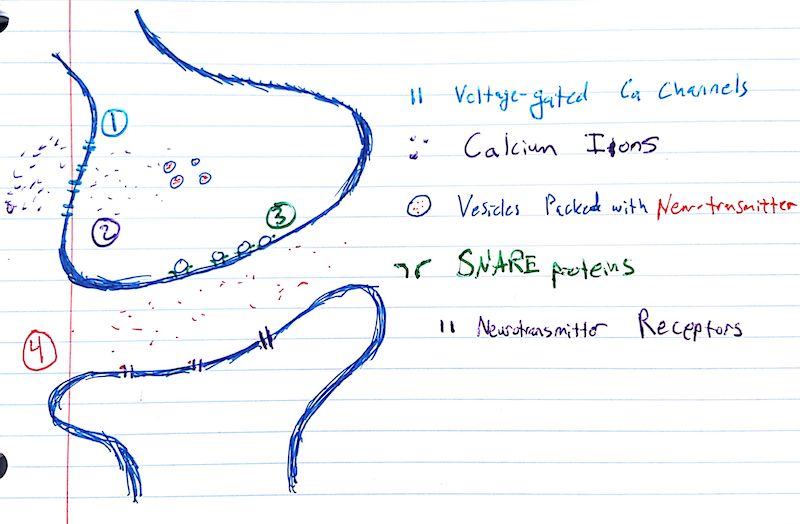 1
2
3
4
Voltage-gated Ca Channels
Calcium Ions
Vesicles Packed with Neurotransmitter
SNARE proteins
Neurotransmitter Receptors